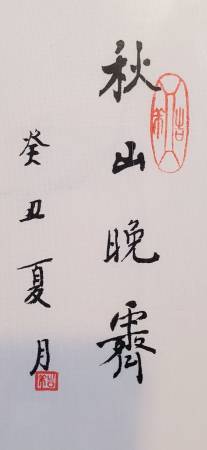 秋山晚霽
癸丑夏月